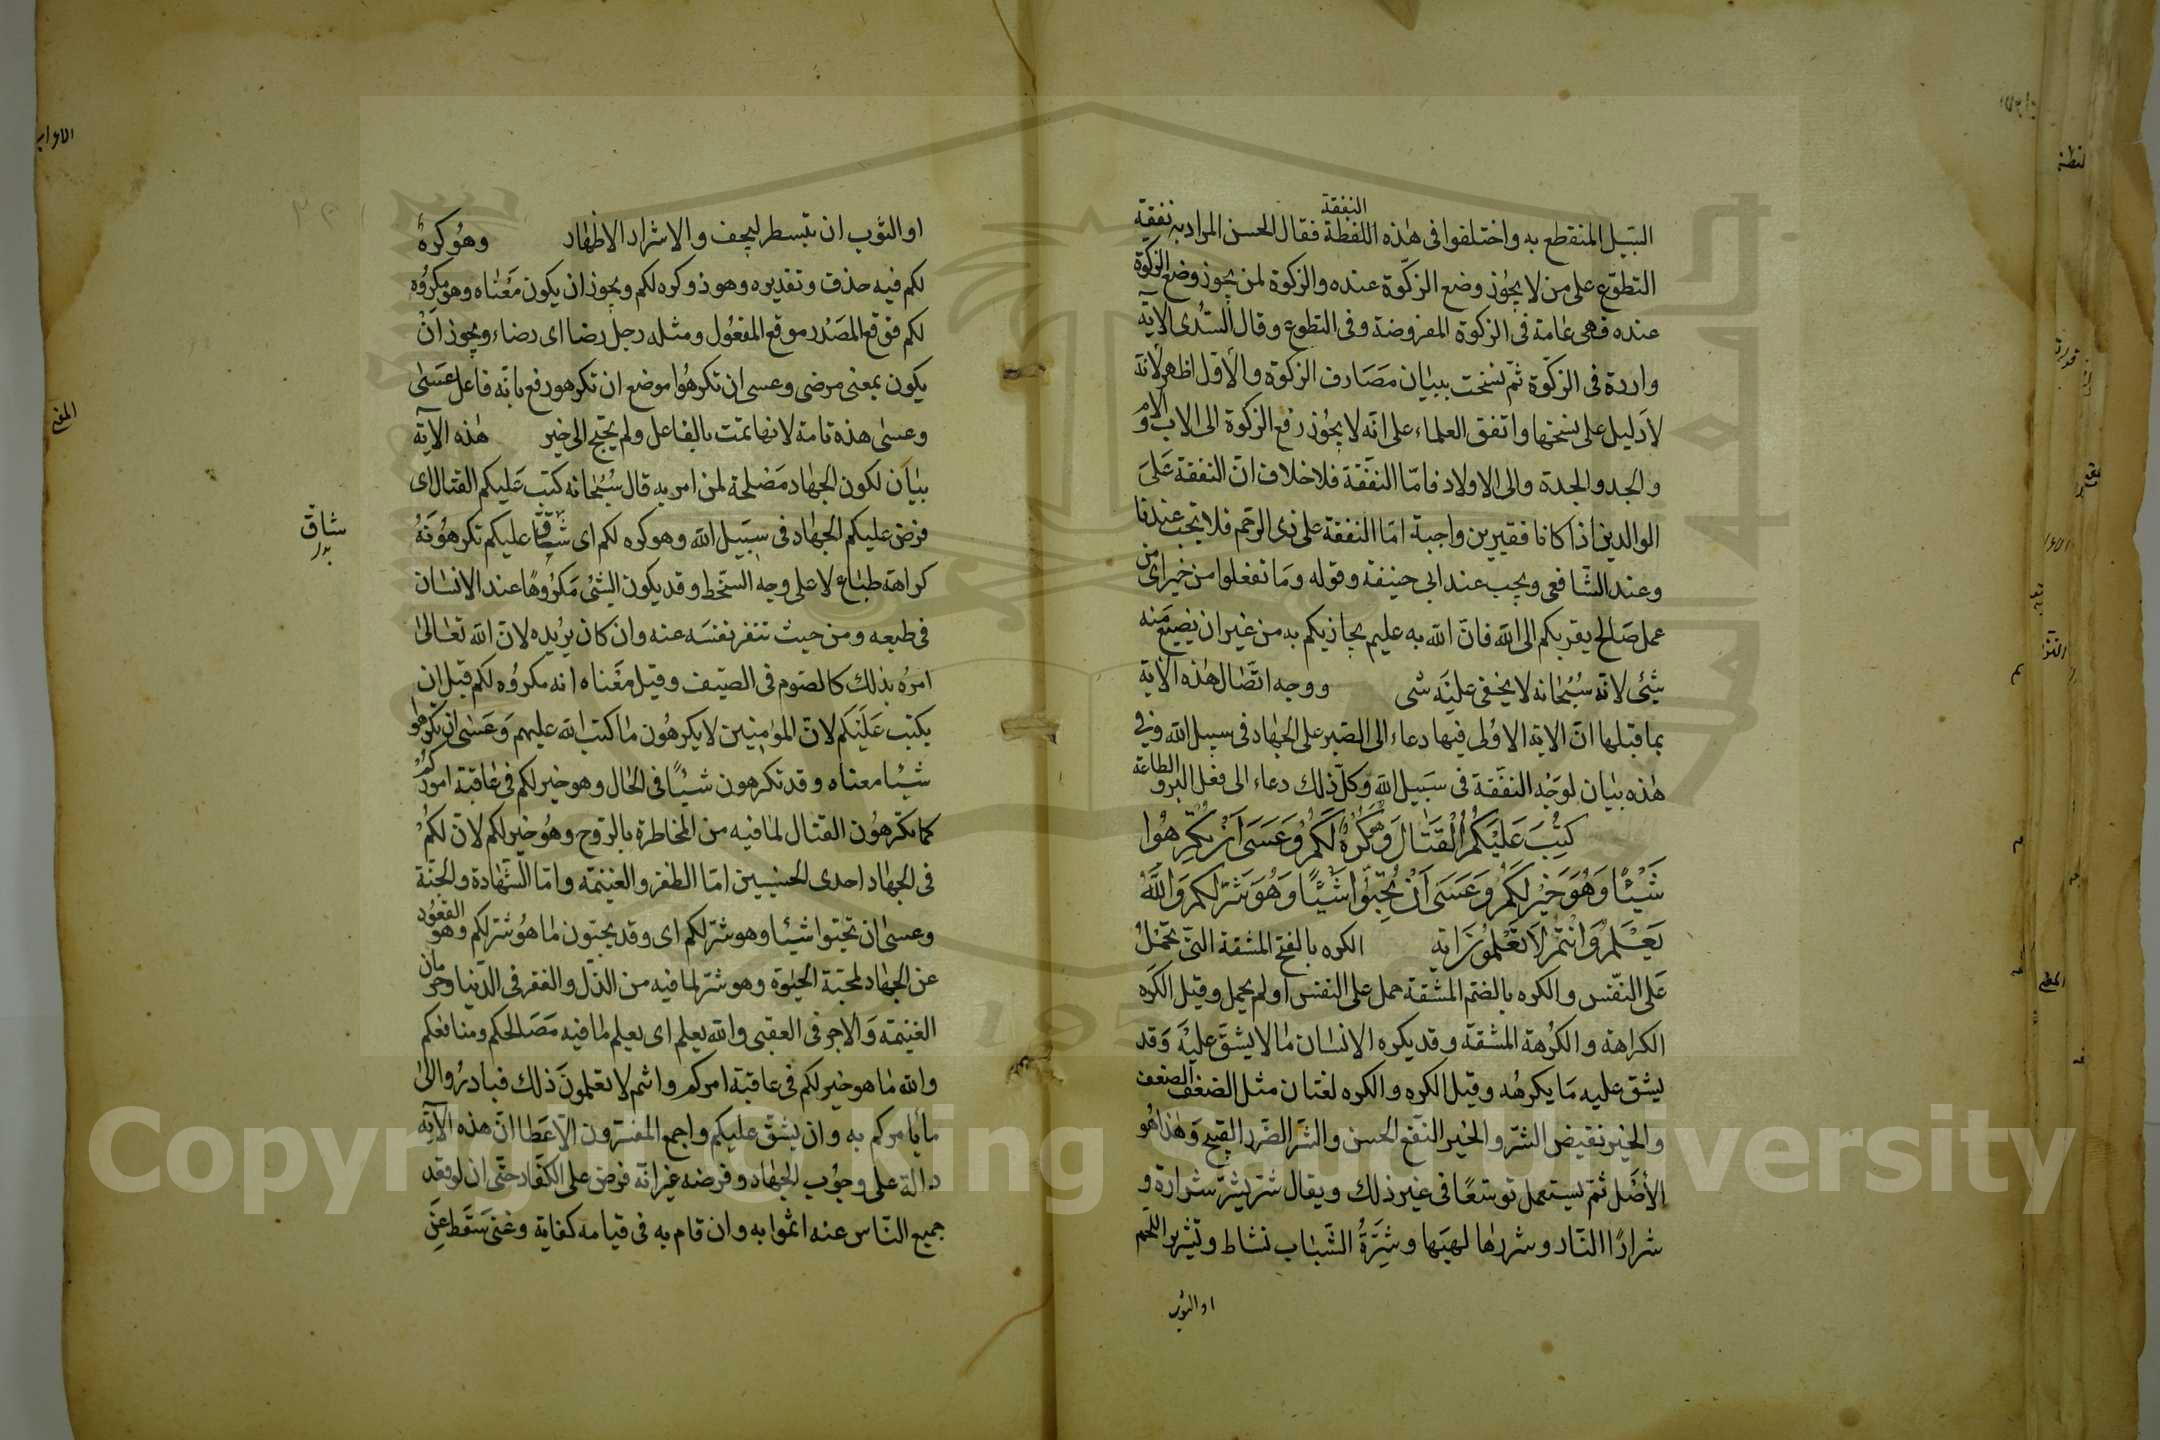 النفقة
السبيل المنقطع به واختلفوا فى هذه اللفظة فقال الحسن المراد به نفقة
التطوّع على من لا يجوز وضع الزكوة عنده والزكوة لمن يجوز وضع الزكوة
عنده فهى عامة فى الزكوة المفروضة وفى التطوع وقال السّدى الآية
واردة فى الزكوة ثمّ نسخت ببيان مصارف الزكوة والأوّل اظهر لانّه
لا دليل على نسخها واتفق العلماء على انّه لا يجوز رفع الزكوة الى الاب والامّ
والجد والجدة والى الاولاد فامّا النفقة فلا خلاف انّ النفقة على
الوالدين اذا كانا فقيرين واجبة امّا النفقة على ذى الرحم فلا تجب عندنا
وعند الشافعى ويجب عند ابى حنيفة وقوله وما تفعلوا من خير اى من
عمل صالح يقربكم الى الله فانّ الله به عليم يجازيكم به من غير ان يضيع منه
شئ لانّه سبحانه لا يخفى عليه شى ووجه اتصال هذه الآية
بما قبلها انّ الاية الاولى فيها دعاء الى الصّبر على الجهاد فى سبيل الله وفى
هذه بيان لوجه النفقة فى سبيل الله وكلّ ذلك دعاء الى فعل البر والطاعة
كُتِبَ عَلَيْكُمُ الْقِتَالُ وَهُوَ كُرْهٌ لَكُمْ وَعَسَى اَنْ تَكْرَهُوا
شَيْئًا وَهُوَ خَيْرٌ لَكُمْ وَعَسَى اَنْ تُحِبُّوا شَيْئًا وَهُوَ شَرٌّ لَكُمْ وَاللَّهُ
يَعْلَمُ وَاَنْتُمْ لَا تَعْلَمُونَ اية الكره بالفتح المشقة التى تحمل
على النّفس والكره بالضم المشقة حمل على النفس او لم يحمل وقيل الكره
الكراهة والكرهة المشقة وقد يكره الانسان ما لا يشقّ عليه وقد
يشق عليه ما يكرهه وقيل الكره والكره لغتان مثل الضعف الضعف
والخير نقيض الشرّ والخير النّفع الحسن والشّر الضّرر القبيح وهذا هو
الأصل ثمّ يستعمل توسّعًا فى غير ذلك ويقال شرّ يشرّ شرارة و
شرارًا النّار وشررها لهبها وشِرَّةُ الشّباب نشاط وتشرير اللحم
او الثوب
او الثّوب ان تبسط ليجف والاشرار الاظهار وهو كره
لكم فيه حذف وتقديره وهو ذو كره لكم ويجوز ان يكون معناه وهو مكروه
لكم فوقع المصدر موقع المفعول ومثله رجل رضا اى رضاء ويجوز أن
يكون بمعنى مرضى وعسى ان تكرهوا موضع ان تكرهو رفع بانّه فاعل عسى
وعسى هذه تامة لانها تمّت بالفاعل ولم يحتج الى خبر هذه الآية
بيان لكون الجهاد مصلحة لمن امر به قال سبحانه كتب عليكم القتال اى
فرض عليكم الجهاد فى سبيل الله وهو كره لكم اى شاقّ عليكم تكرهونه
شاقّ
كراهة طباع لا على وجه السّخط وقد يكون الشئ مكروهًا عند الانسان
فى طبعه ومن حيث تنفر نفسه عنه وان كان يريده لانّ الله تعالى
امره بذلك كالصّوم فى الصّيف وقيل معناه انه مكروه لكم قبل ان
يكتب عليكم لانّ المؤمنين لا يكرهون ما كتب الله عليهم وعسى ان تكرهوا
شيئا معناه وقد تكرهون شيئًا فى الحال وهو خير لكم فى عاقبة اموركم
كما تكرهون القتال لما فيه من المخاطرة بالرّوح وهو خير لكم لانّ لكم
فى الجهاد احدى الحسنيين امّا الظفر والغنيمة وامّا الشّهادة والجنّة
وعسى ان تحبّوا شيئا وهو شرّ لكم اى وقد تحبّون ما هو شرّ لكم وهو القعود
عن الجهاد لمحبّة الحيوة وهو شرّ لما فيه من الذّل والفقر فى الدّنيا وحرمان
الغنيمة والاجر فى العقبى والله يعلم اى يعلم ما فيه مصالحكم ومنافعكم
والله ما هو خير لكم فى عاقبة امركم وانتم لا تعلمون ذلك فبادروا الى
ما يامركم به وان يشقّ عليكم واجمع المفسّرون الّا عطا انّ هذه الآية
دالة على وجوب الجهاد وفرضه غير انّه فرض على الكفاد حتّى ان لو قعد
جميع النّاس عنه اثموا به وان قام به فى قيامه كفاية وغنى سقط عن
الاعراب
المعنى
Copyright © King Saud University